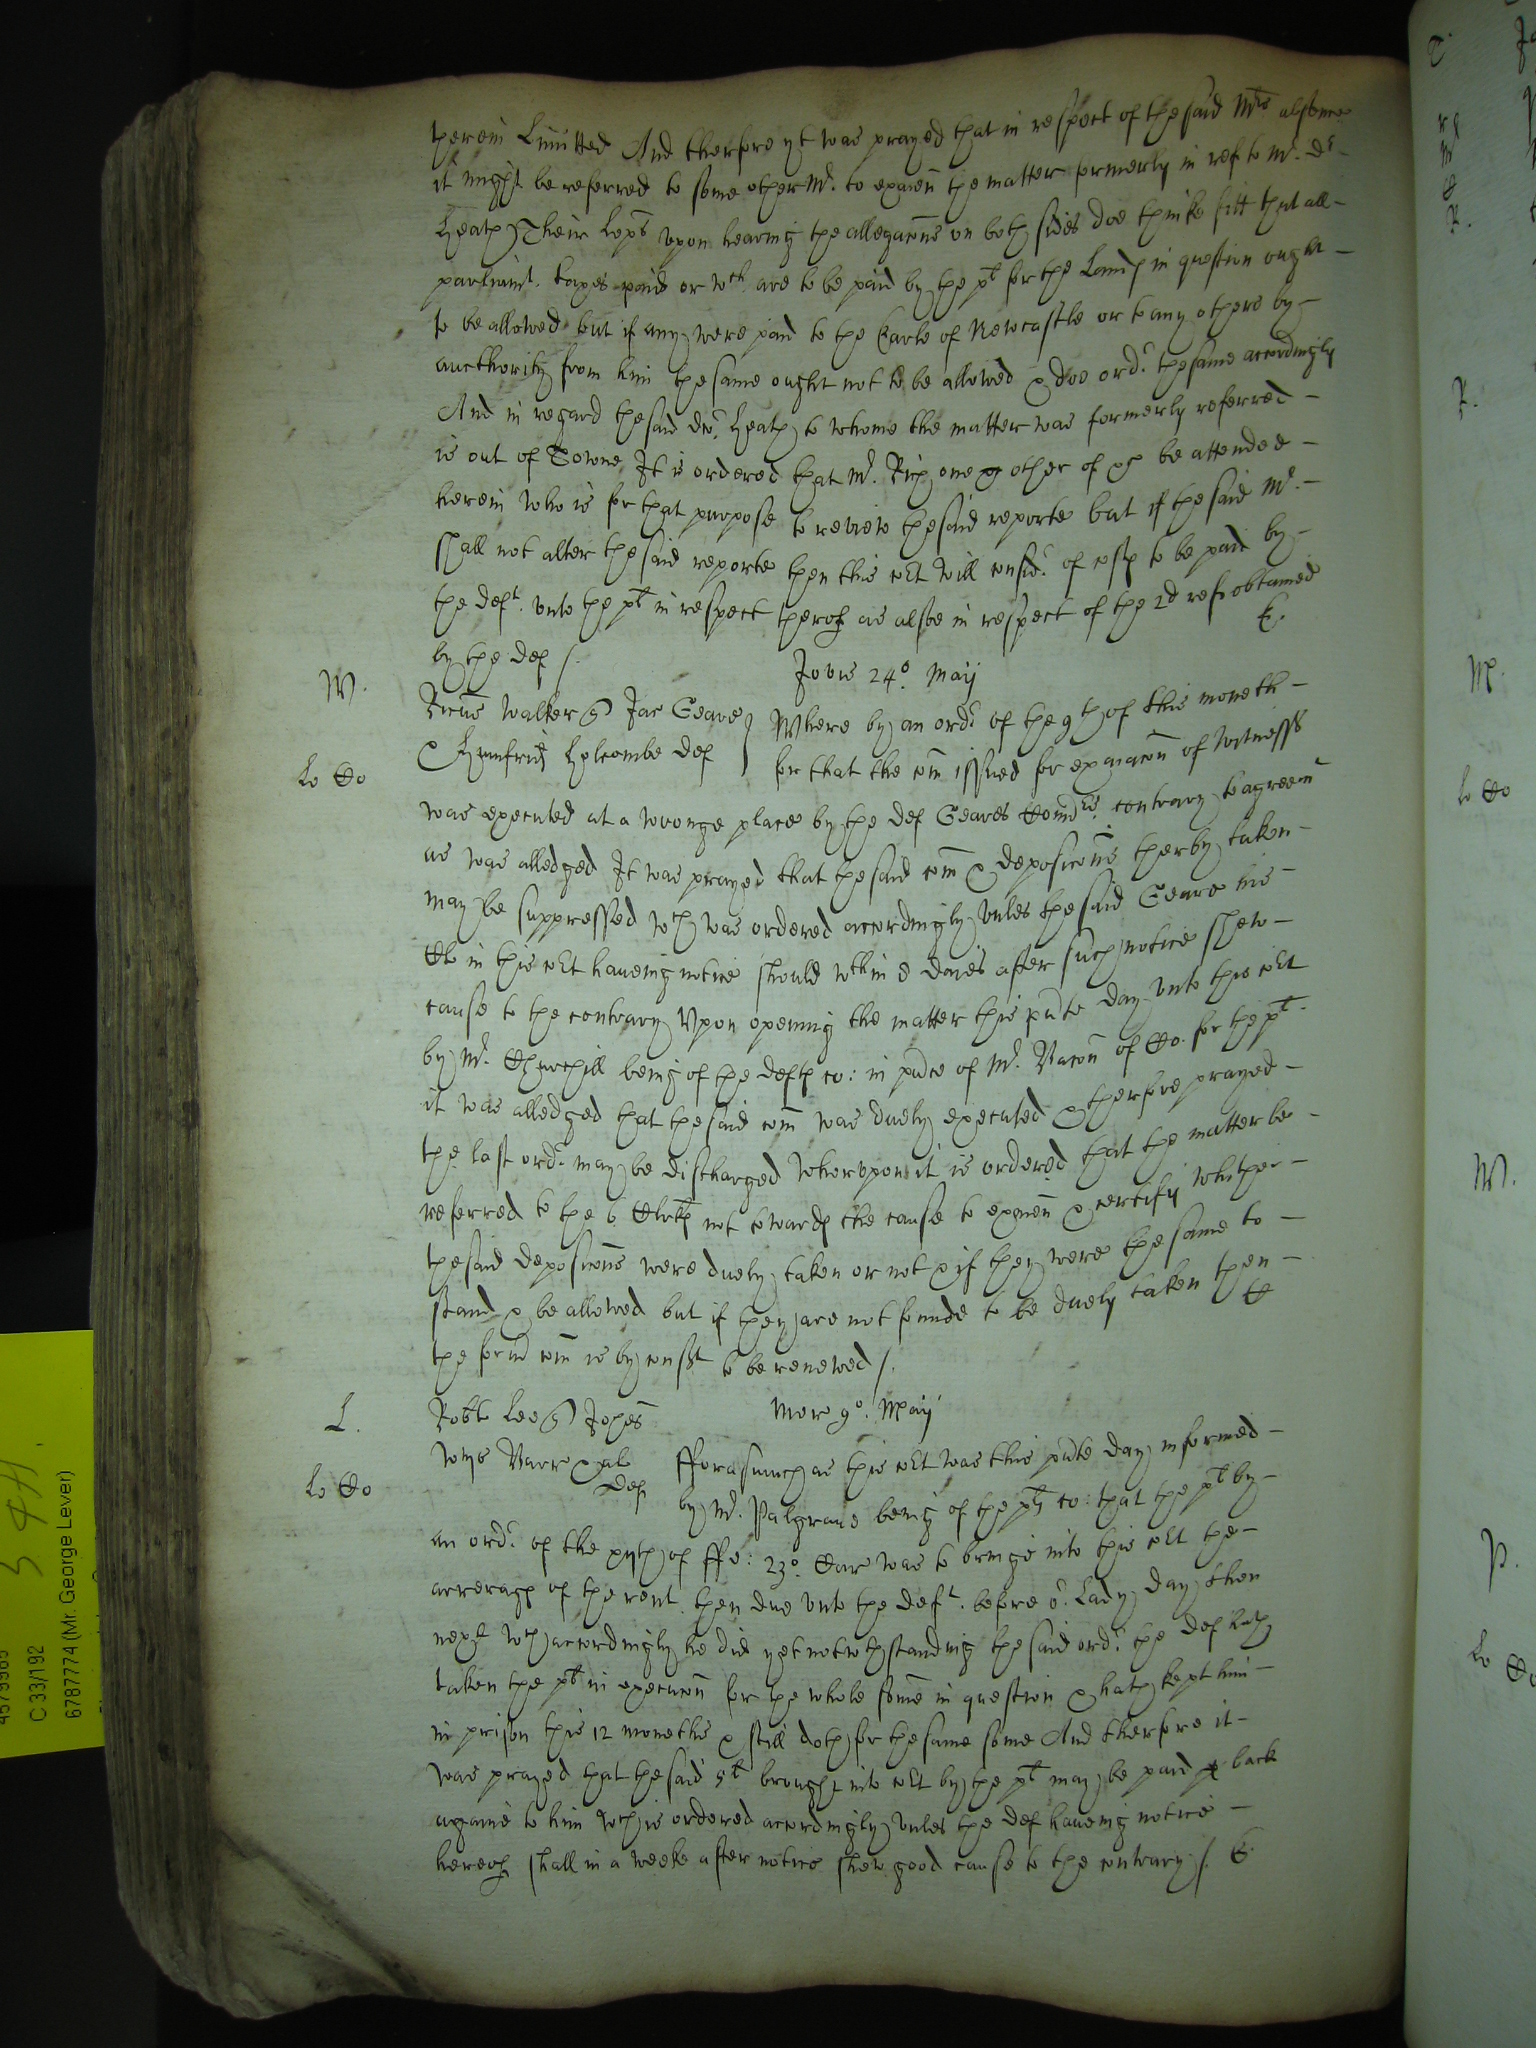 therein Limitted And therfore yt was prayed that in respect of the said Mrs absence
it might be referred to some other Mr. to exaien the matter formerly in ref to Mr. Dr
Heath Their Lopps upon hearing the allegacons on both sides doe thinke fitt that all
parliamt. taxes paid or wch are to be paid by the plt for the Lands in question ought
to be allowed but if any were paid to the Earle of Newcastle or to any others by
aucthority from him the same ought not to be allowed & doe ordr. the same accordingly
And in regard the said Dr. Heath to whome the matter was formerly referred
is out of Towne It is ordered that Mr. Rich one other of ye be attended
herein who is for that purpose to review the said reporte but if the said Mr.
shall not alter the said reporte then this cort will considr. of costs to be paid by
the deft. unto the plt in respect therof as alsoe in respect of the 2d refr obtained
by the def /. E.
Jovis 24o. Maij
W. Ricus Walker q Jac Geare
& Humfrid Holcombe def
Where by an ordr of the 9th of this moneth
Lo Co for that the com issued for exaiacon of witnesses
was executed at a wronge place by the def Geares Comrs. contrary to agreemt
as was alledged It was prayed that the said com & deposicons therby taken
may be suppressed wch was ordered accordingly unles the said Geare his
Clk in this cort haveing notice should wthin 8 daies after such notice shew
cause to the contrary Upon opening the matter this pnte day unto this cort
by Mr. Churchill being of the defts co: in pnce of Mr. Bacon of Co. for the plt.
it was alledged that the said com was duely executed & therfore prayed
the last ordr. may be discharged Wherupon it is ordered that the matter be
referred to the 6. Clrks not towards the cause to exaien & certify whither
the said deposicons were duely taken or not & if they were the same to
stand & be allowed but if they are not founde to be duely taken then
the form com is by consent to be renewed /. E
L. Robte Lee q Johes Mere 9o. Maij
Lo Co Wms Barr & al
def
Fforasmuch as this cort was this pnte day informed
by Mr. Palgrave being of the plts co: that the plt by
an ordr. of the xijth of ffe: 23o. Car was to bringe into this cort the
arrerags of the rent then due unto the deft. before or Lady day then
next wch accordingly he did yet notwthstanding the said ordr. the def hath
taken the plt in execucon for the whole some in question & hath kept him
in prison this 12 moneths & still doth for the same some And therfore it
was prayed that the said 5l brought into cort by the plt may be paid back
againe to him wch is ordered accordingly unles the def haveing notice
hereof shall in a weeke after notice shew good cause to the contrary /. E.
C 33/192
6787774 (Mr. George Lever)